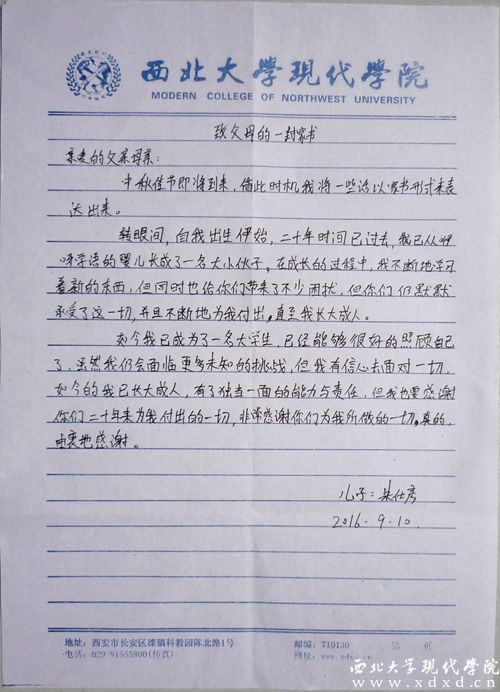 西北大学现代学院
MODERN COLLEGE OF NORTHWEST UNIVERSITY
致父母的一封家书
亲爱的父亲母亲：
中秋佳节即将到来，借此时机我将一些话以家书形式来表
达出来。
转眼间，自我出生伊始，二十年时间已过去，我已从咿
呀学语的婴儿长成了一名大小伙子。在成长的过程中，我不断地学习
着新的东西，但同时也给你们带来了不少困扰，但你们仍默默
承受了这一切，并且不断地为我付出，直至我长大成人。
如今我已成为了一名大学生，已经能够很好的照顾自己
了，虽然我仍会面临更多未知的挑战，但我有信心去面对一切。
如今的我已长大成人，有了独当一面的能力与责任，但我也要感谢
你们二十年来为我付出的一切，非常感谢你们为我所做的一切，真的，
由衷地感谢。
儿子：朱仕彦
2016.9.10.
地址：西安市长安区滦镇科教园陈北路1号
邮编：710130 第 页
电话：029-81555800(传真)
网址：www.xdxd.cn
西北大学现代学院
www.xdxd.cn